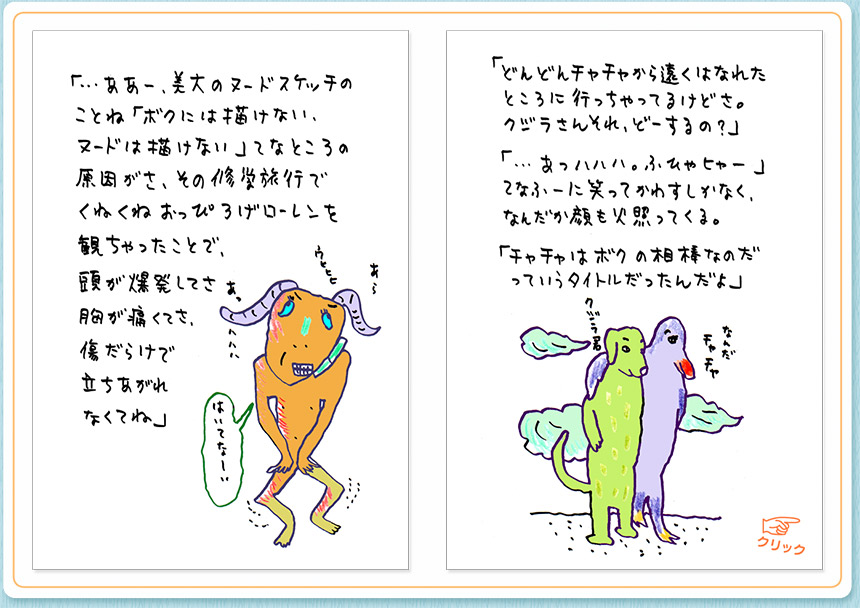 「…ああー、美大のヌードスケッチの
ことね「ボクには描けない、
ヌードは描けない」てなところの
原因がさ、その修学旅行で
くねくねおっぴろげローレンを
観ちゃったことで、
頭が爆発してさ
胸が痛くてさ、
傷だらけで
立ちあがれ
なくてね」
ウヒヒヒ
あら
あっ
ハハハ
はいてなーい
「どんどんチャチャから遠くはなれた
ところに行っちゃってるけどさ。
クジラさんそれ、どーするの？」
「…あっハハハ。ふひゃヒャー」
てなふーに笑ってかわすしかなく、
なんだか顔も火照ってくる。
「チャチャはボクの相棒なのだ
っていうタイトルだったんだよ」
クジラ君
なんだ
チャチャ
クリック